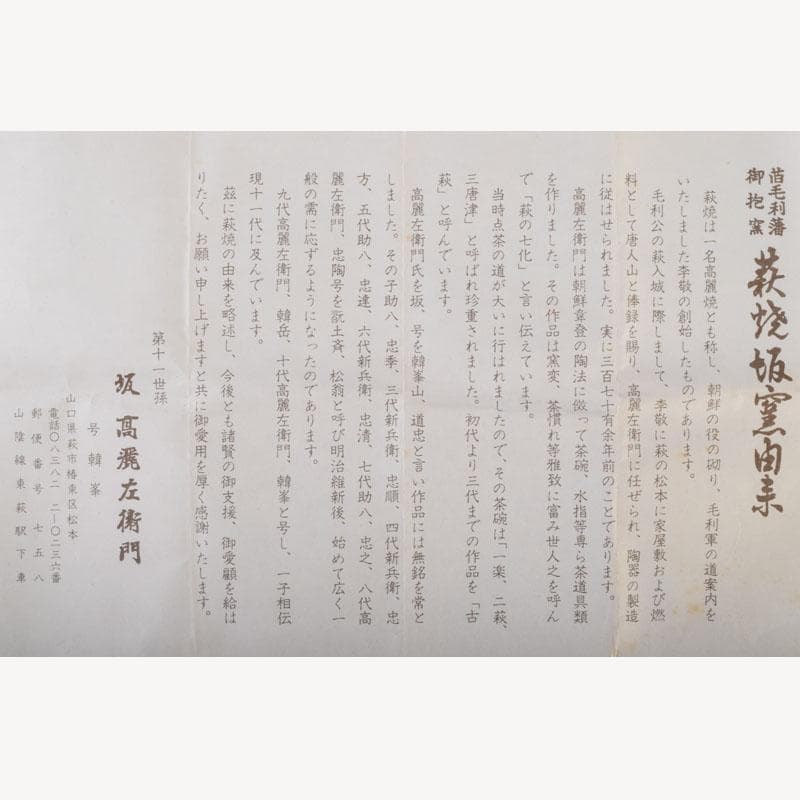 旧毛利藩
御抱窯
萩焼坂窯由来
萩焼は一名高麗焼とも称し、朝鮮の役の砌り、毛利軍の道案内を
いたしました李敬の創始したものであります。
毛利公の萩入城に際しまして、李敬に萩の松本に家屋敷および燃
料として唐人山と俸録を賜り、高麗左衛門に任ぜられ、陶器の製造
に従はせられました。実に三百七十有余年前のことであります。
高麗左衛門は朝鮮韋登の陶法に倣って茶碗、水指等専ら茶道具類
を作りました。その作品は窯変、茶慣れ等雅致に富み世人之を呼ん
で「萩の七化」と言い伝えています。
当時点茶の道が大いに行はれましたので、その茶碗は「一楽、二萩、
三唐津」と呼ばれ珍重されました。初代より三代までの作品を「古
萩」と呼んでいます。
高麗左衛門氏を坂、号を韓峯山、道忠と言い作品には無銘を常と
しました。その子助八、忠季、三代新兵衛、忠順、四代新兵衛、忠
方、五代助八、忠達、六代新兵衛、忠清、七代助八、忠之、八代高
麗左衛門、忠陶号を翫土斉、松翁と呼び明治維新後、始めて広く一
般の需に応ずるようになったのであります。
九代高麗左衛門、韓岳、十代高麗左衛門、韓峯と号し、一子相伝
現十一代に及んでいます。
茲に萩焼の由来を略述し、今後とも諸賢の御支援、御愛顧を給は
りたく、お願い申し上げますと共に御愛用を厚く感謝いたします。
第十一世孫
坂高麗左衛門
号韓峯
山口県萩市椿東区松本
電話〇八三八二 二-〇二三六番
郵便番号七五八
山陰線東萩駅下車